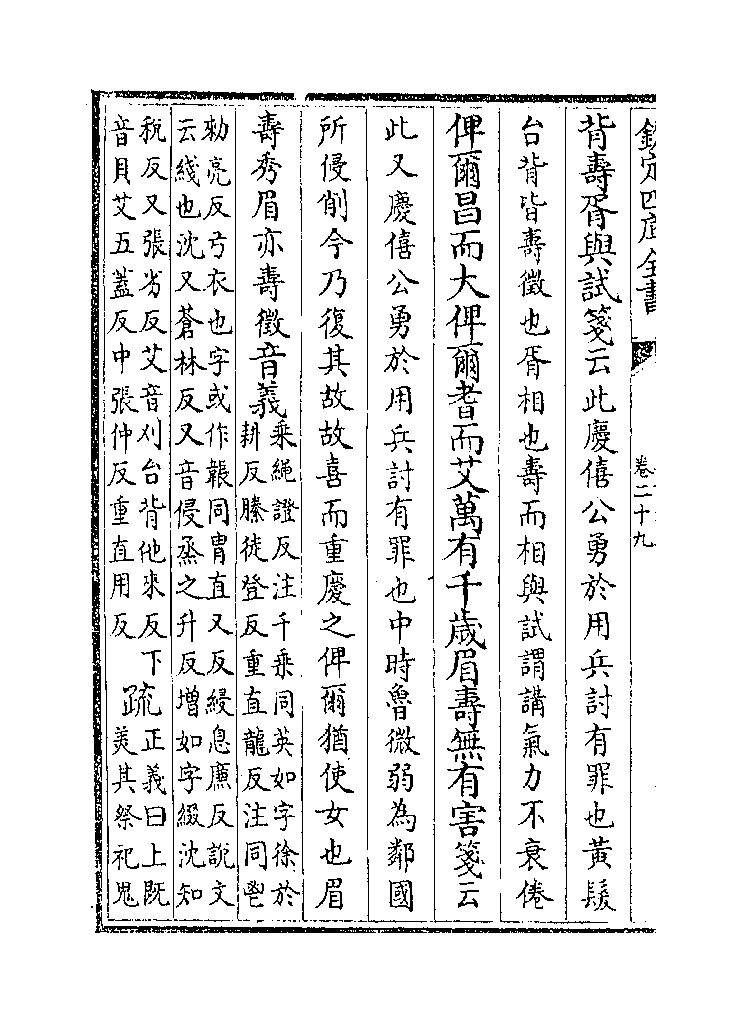 欽定四庫全書
卷二十九
背壽胥與試箋云此慶僖公勇於用兵討有罪也黃髮
台背皆壽徵也胥相也壽而相與試謂講氣力不衰倦
俾爾昌而大俾爾耆而艾萬有千歲眉壽無有害箋云
此又慶僖公勇於用兵討有罪也中時魯微弱為鄰國
所侵削今乃復其故故喜而重慶之俾爾猶使女也眉
壽秀眉亦壽徵音義
乘繩證反注千乘同英如字徐於
耕反縢徒登反重直龍反注同鬯
勅亮反弓衣也字或作韔同冑直又反綅息廉反說文
云綫也沈又蒼林反又音侵烝之升反增如字綴沈知
稅反又張劣反艾音刈台背他來反下
音貝艾五蓋反中張仲反重直用反
疏
正義曰上既
美其祭祀鬼